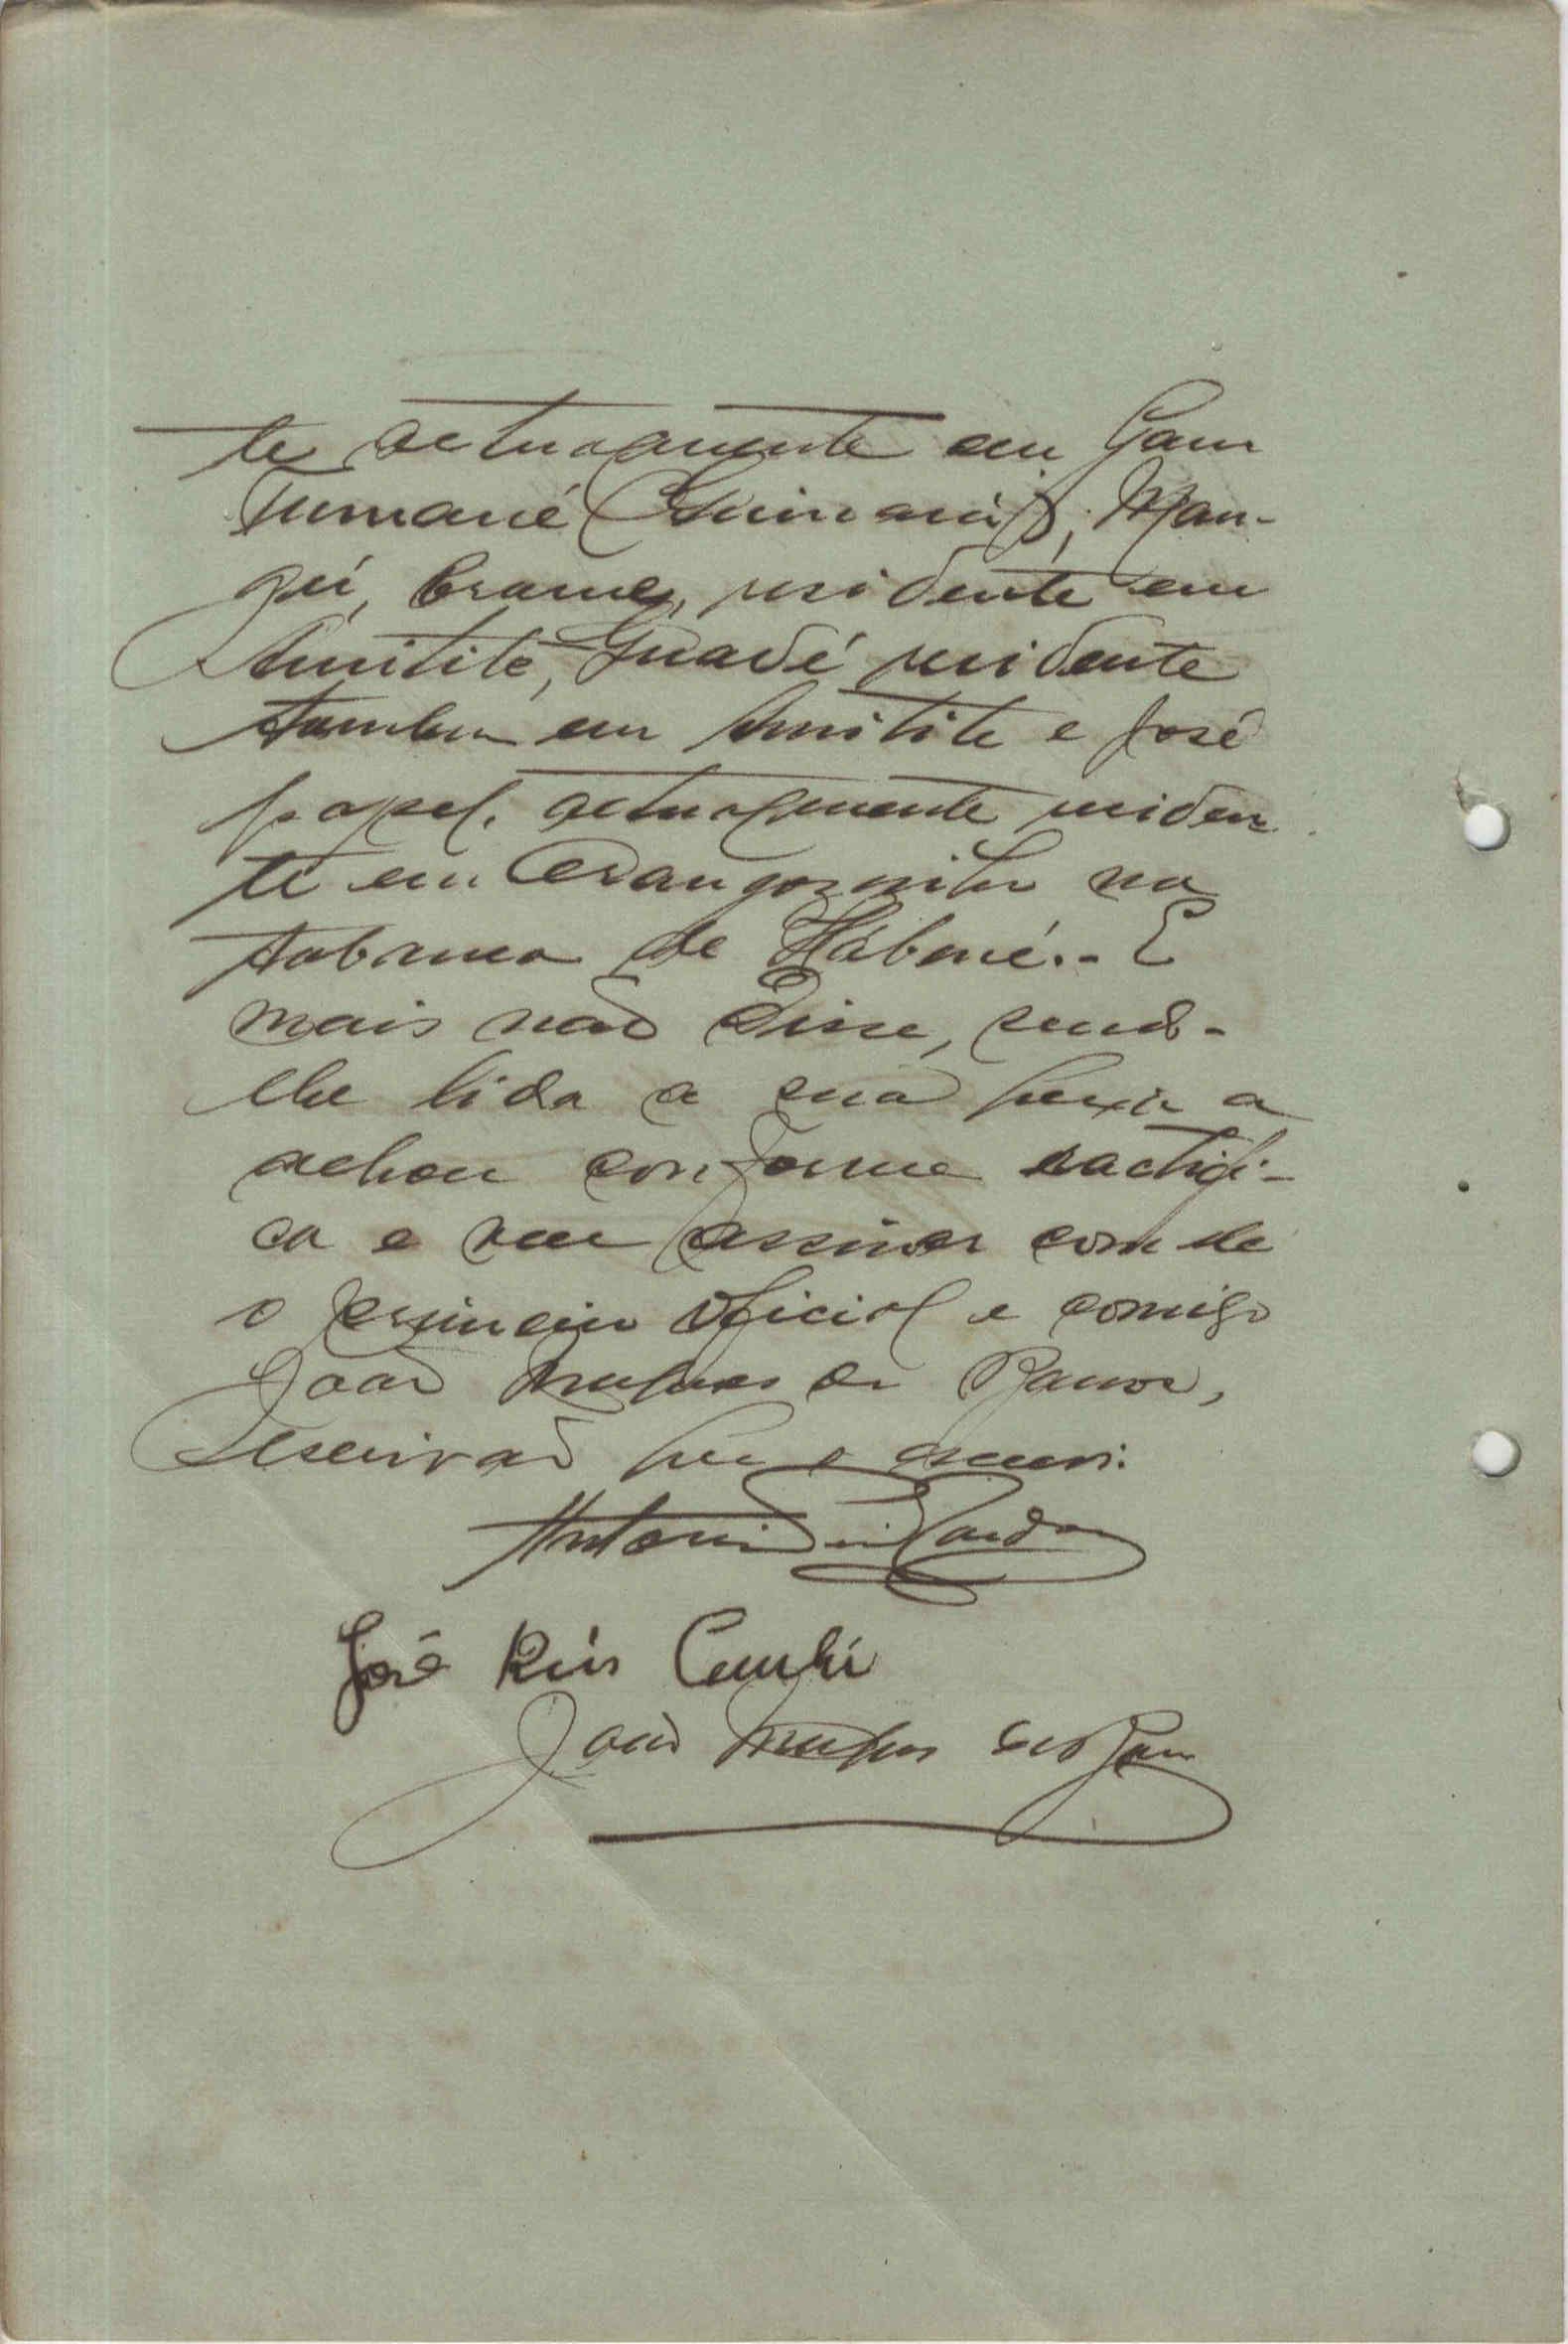 te actualmente em Gam
Tumané; Man-
gui, brame, residente em
Amitite, Guadé residente
tambem em Amitite e José
papel, actualmente residen
te em Orangozinho na
tabanca de Hábené.- E
mais não disse, sendo-
lhe lida a sua
achou conforme ractifi-
ca e vae assinar com
o primeiro oficial e comigo
João dos Ramos,
Escrivão que o escrevi.
Antonio
José Reis
João dos Ram